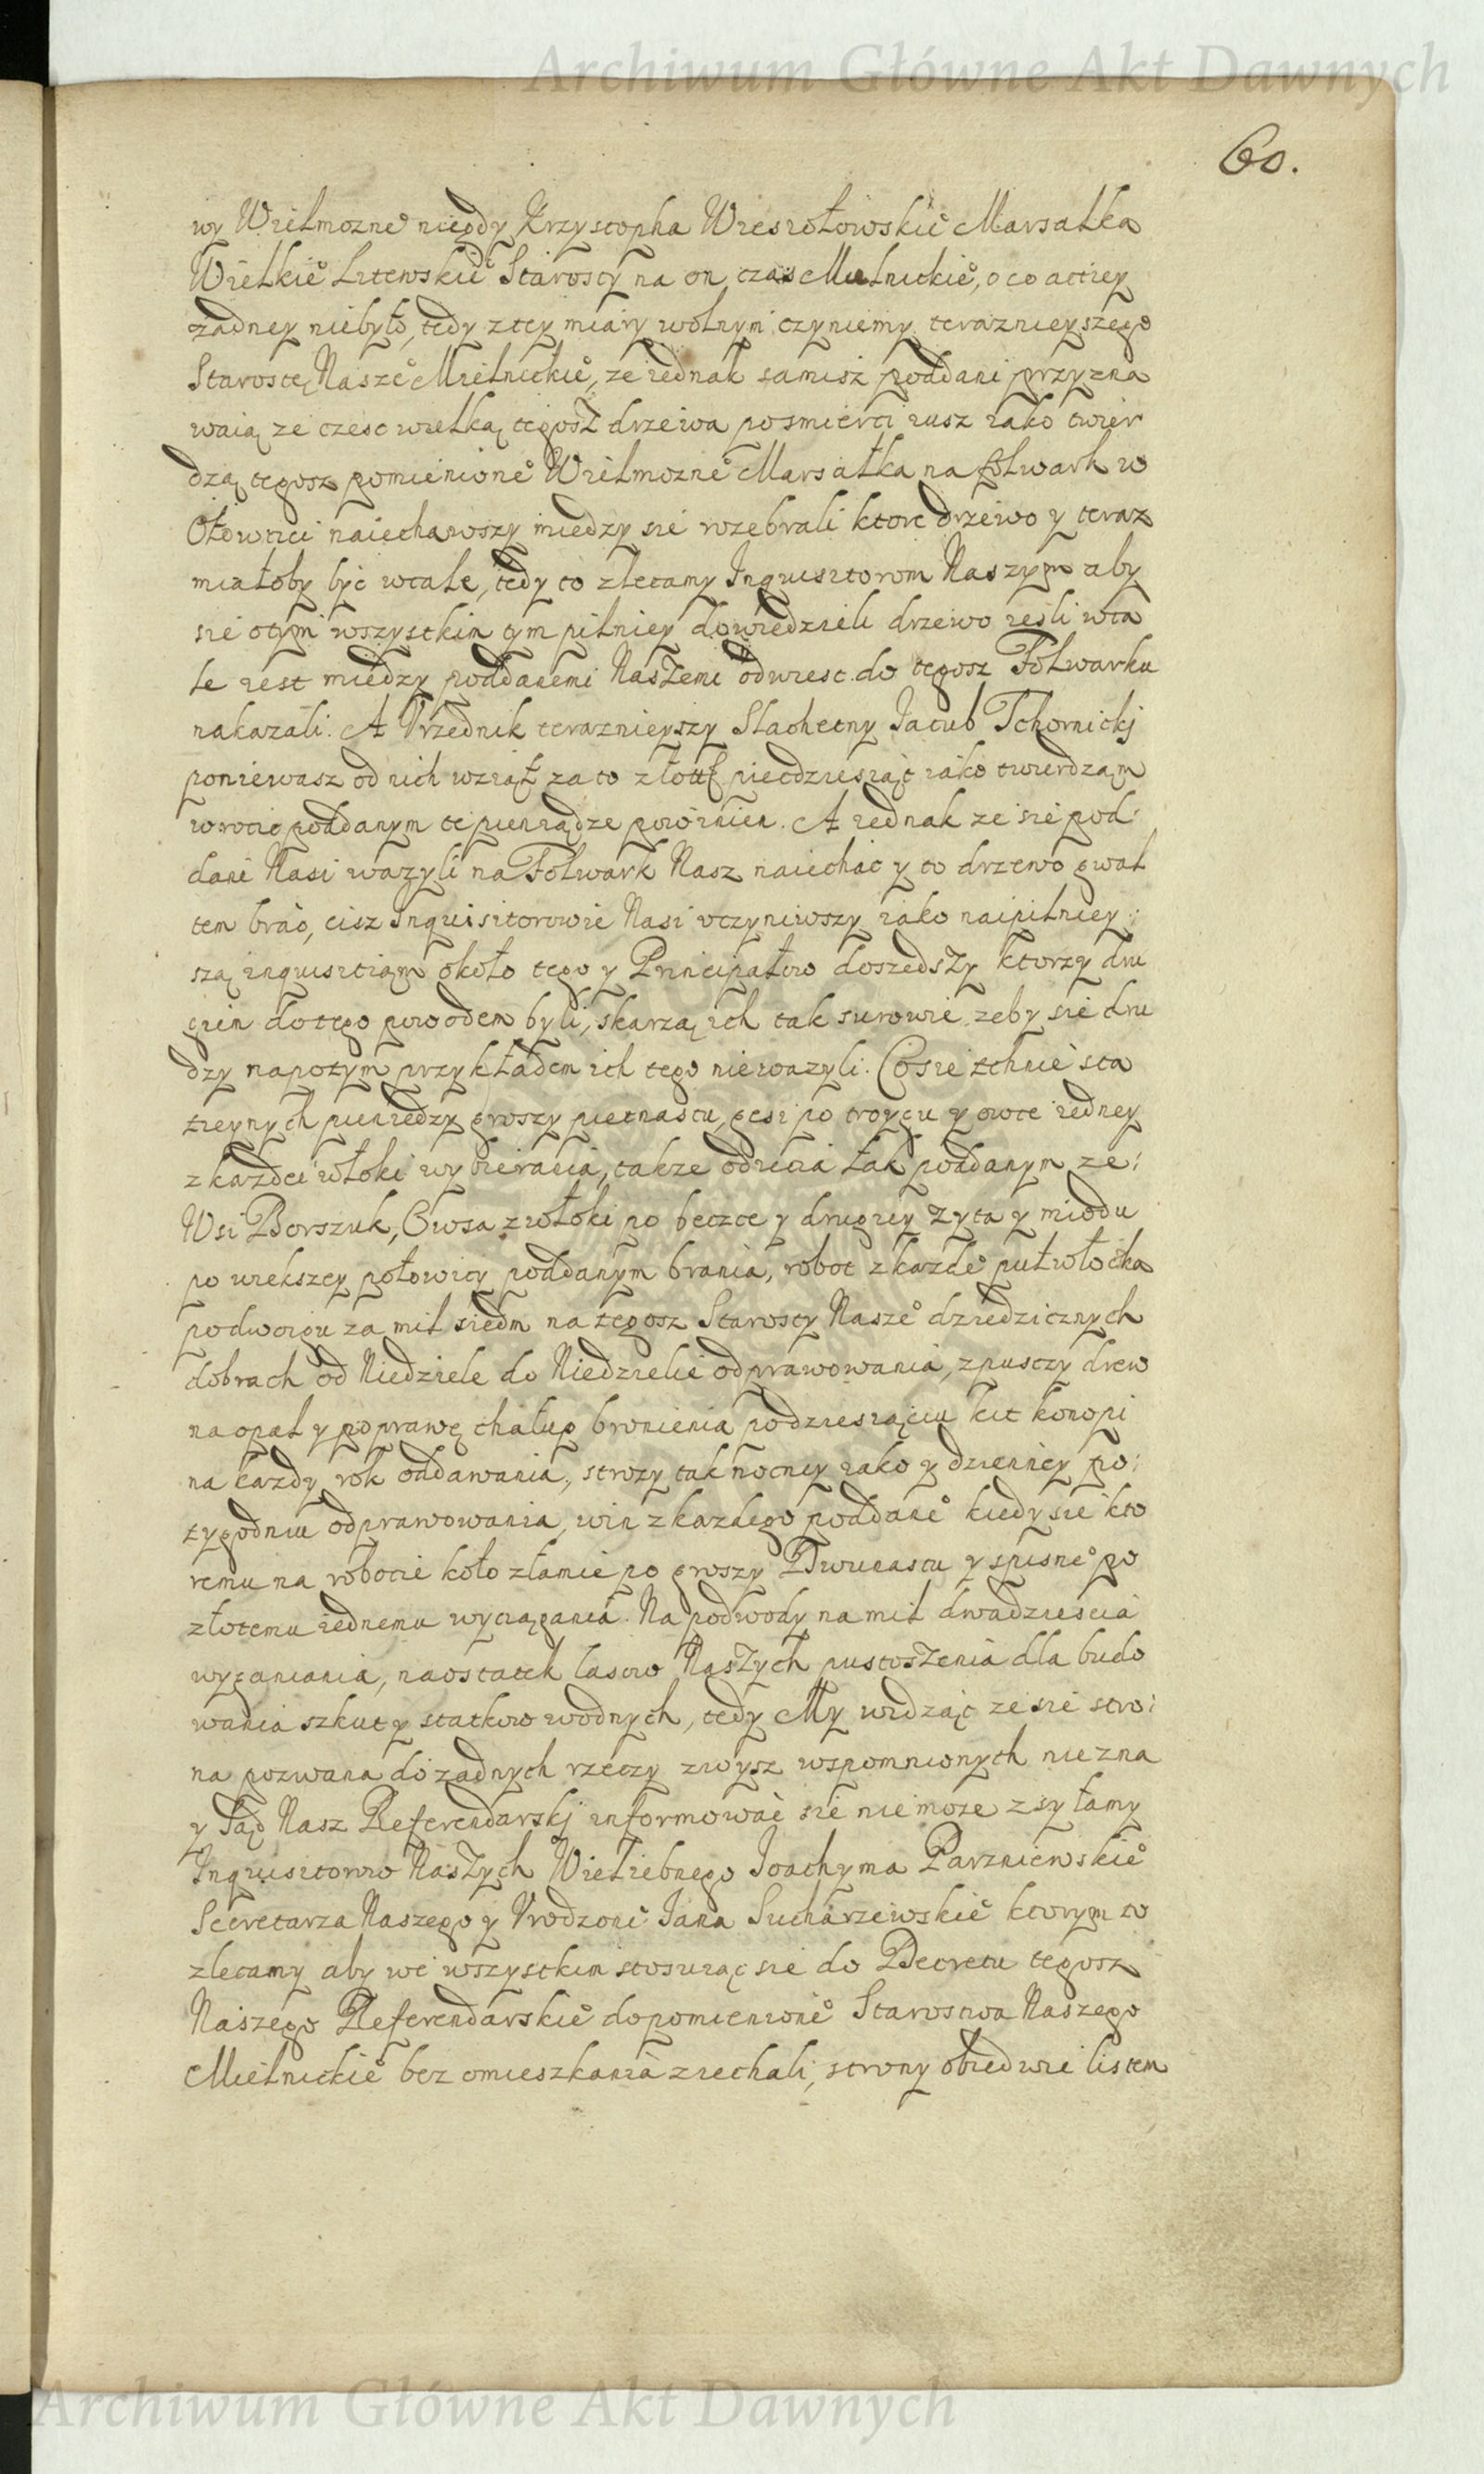 Archiwum Główne Akt Dawnych
60.
wy Wielmozne° niegdy Krzystopha Wiesiołowskie° Marsałka
Wielkie° Litewskie° Starosty na on czas Mielnickie°, o co actiey
zadney niebyło, tedy z tey miary wolnym czyniemy teraznieyszego
Starostę Nasze° Mielnickie°, ze iednak samisz poddani przyzna
waią ze czesc wielką tegosz drzewa posmierci iusz iako twier
dzą tegosz pomienione° Wielmozne° Marsałka na folwark w
Ołowcici naiechawszy miedzy sie rozebrali ktore drzewo y teraz
miałoby być wcale, tedy to zlecamy Inquisitorom Naszym aby
sie otym wszystkim tym pilniey dowiedzieli drzewo iesli wca
le iest miedzy poddanemi Naszemi odwiesc do tegosz Folwarku
nakazali. A Vrzednik teraznieyszy Slachetny Jacub Tchornickj
poniewasz od nich wziął za to złott. piecdziesiąt iako twierdzam
wrocic poddanym te pieniądze powinien. A iednak ze sie pod:
dani Nasi wazyli na Folwark Nasz naiechać y to drzewo gwał
tem brać, cisz Inquisitorowie Nasi vczyniwszy iako naipilniey:
szą inquisitiam około tego y Principałow doszedszy ktorzy dru
giem do tego powodem byli, skarzą ich tak surowie zeby sie dru
dzy napotym przykładem ich tego niewazyli. Co sie tchnie sta
tieynych pieniedzy groszy pietnastu, gesi po troygu y owce iedney
z kazdei włoki wybierania, takze odiecia łak poddanym ze:
Wsi Borszuk, Owsa z włoki po beczce y drugiey zyta y miodu
po wiekszey połowicy poddanym brania, robot z kazde° puł włocka
podwoigu za mil siedm na tegosz Starosty Nasze° dziedzicznych
dobrach od Niedziele do Niedzielie odprawowania, z pusczy drew
na opał y poprawę chałup bronienia podziesiąciu kit konopi
na kazdy rok oddawania, strozy tak nocney iako y dzienney po:
tygodniu odprawowania, win z kazdego poddane° kiedy sie kto
remu na robocie koło złamie po groszy Dwunastu y spisne° po
złotemu iednemu wyciągania. Na podwody na mil dwadziescia
wyganiania, naostatek lasow Naszych pustoszenia dla budo
wania szkut y statkow wodnych, tedy My widząc ze sie stro:
na pozwana do zadnych rzeczy zwysz wspomnionych nie zna
y Sąd Nasz Referendarskj informowac sie nie moze zsyłamy
Inquisitorow Naszych Wielebnego Joachyma Parzniewskie°
Secretarza Naszego y Vrodzone° Jana Sucharzewskie° ktorym to
zlecamy aby we wszystkim stosuiąc sie do Decretu tegosz
Naszego Referendarskie° do pomienione° Starostwa Naszego
Mielnickie° bez omieszkania ziechali, strony obiedwie listem
Archiwum Główne Akt Dawnych